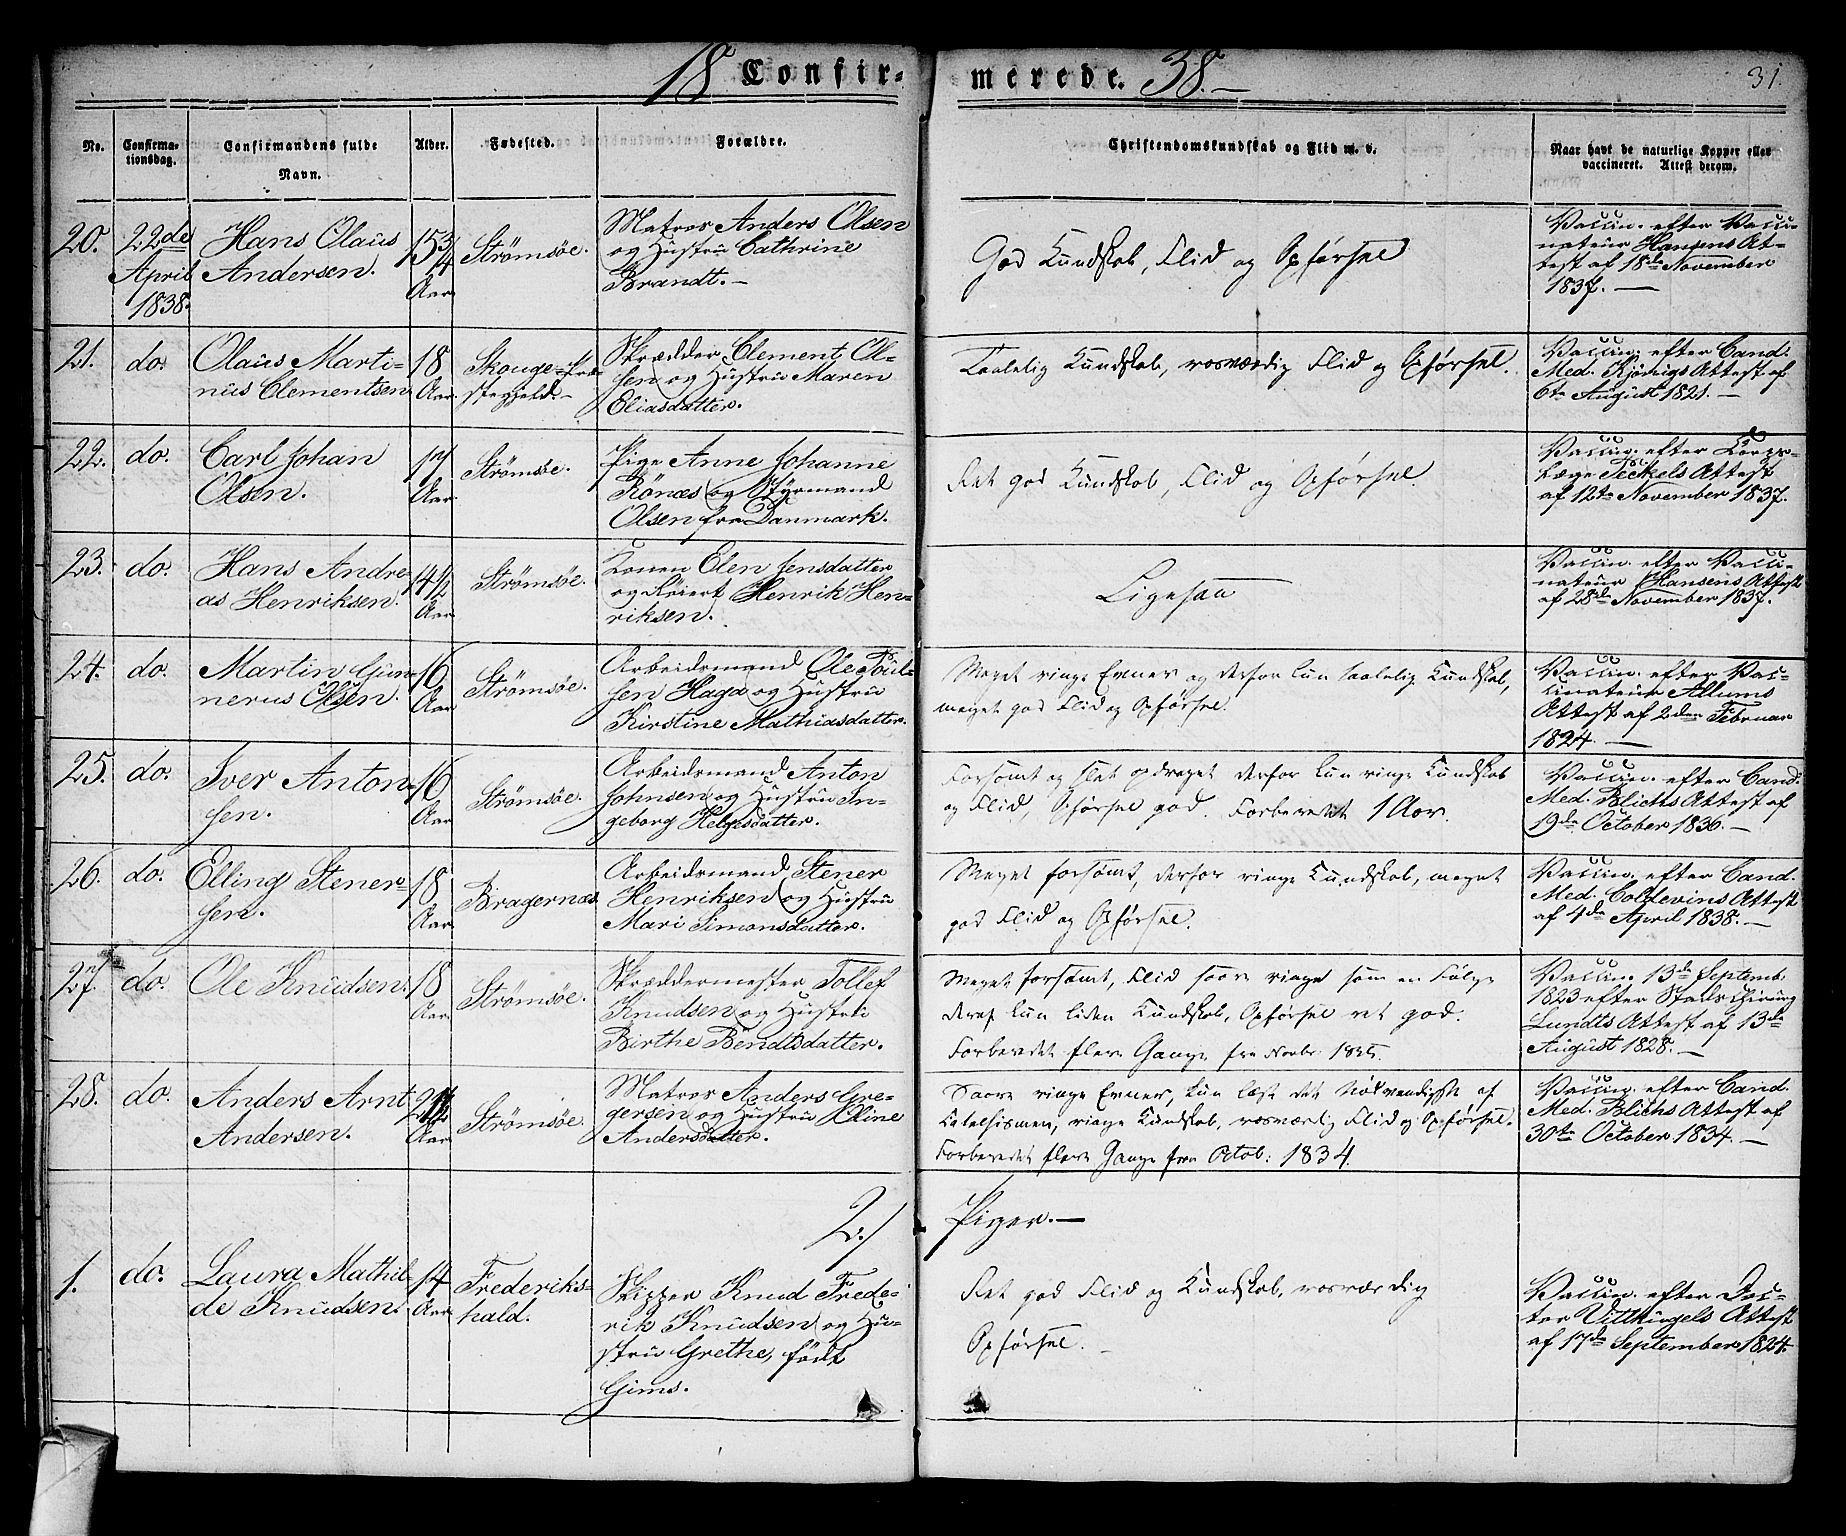 18 Confir-merede. 38.
31.
No.
Confirma-
tionsdag.
Confirmandens fulde
Navn.
Alder.
Fødested.
Forældre.
Christendomskundskab og Flid m. v.
Naar havt de naturlige Kopper eller
vaccineret. Attest derom.
20.
22de
April
1838.
Hans Olaus
Andersen.
15 3/4
Aar
Strömsöe.
Matros Anders Olsen
og Hustru Cathrine
Brandt.
God Kundskab, Flid og Opførsel
Vaccin. efter Vacci-
nateur Hansens At-
test af 18de November
1837.
21.
do.
Olaus Marti-
nus Clementsen
18
Aar
Skouge-Præ-
stegjeld.
Skrædder Clement Ol-
sen og Hustru Maren
Eliasdatter.
Taalelig Kundskab, rosværdig Flid og Opførsel.
Vaccin. efter Cand.
Med. Attest af
6te August 1821.
22.
do.
Carl Johan
Olsen.
17
Aar
Strömsöe.
Pige Anne Johanne
Rönæs og Styrmand
Olsen fra Danmark.
Ret god Kundskab, Flid og Opførsel.
Vaccin. efter Corps-
læge Attest
af 12te November 1837.
23.
do.
Hans Andre-
as Henriksen.
14 1/2
Aar
Strömsöe.
Konen Elen Jensdatter
og Henrik Hen-
riksen.
Ligesaa
Vaccin. efter Vacci-
nateur Hansens Attest
af 28de November 1837.
24.
do.
Martin Gun-
nerus Olsen.
16
Aar
Strömsöe.
Arbeidsmand Ole Poul-
sen Haga og Hustru
Kirstine Mathiasdatter.
Meget ringe Evner og derfor kun taalelig Kundskab,
meget god Flid og Opførsel.
Vaccin. efter Vac-
cinateur Allums
Attest af 2den Februar
1824.
25.
do.
Iver Anton-
sen.
16
Aar
Strömsöe.
Arbeidsmand Anton
Johnsen og Hustru In-
geborg Helgesdatter.
Forsømt og slet opdraget derfor kun ringe Kundskab
og Flid, Opførsel god. Forberedet 1 Aar.
Vaccin. efter Cand.
Med. Blichs Attest af
19de October 1836.
26.
do.
Elling Stener-
sen.
18
Aar
Bragernæs.
Arbeidsmand Stener
Henriksen og Hustru
Mari Simonsdatter.
Meget forsømt, derfor ringe Kundskab, meget
god Flid og Opførsel.
Vaccin. efter Cand.
Med. Coldevins Attest
af 4de April 1838.
27.
do.
Ole Knudsen.
18
Aar
Strömsöe.
Skræddermester Tollef
Knudsen og Hustru
Birthe Bendtsdatter.
Meget forsømt, Flid saare ringe som en Følge
deraf kun liden Kundskab, Opførsel ret god.
Forberedet flere Gange fra Novbr.
Vaccin. 13de Septemb.
1823 efter Stads Chirurg
Lundts Attest af 13de
August 1828.
28.
do.
Anders Arnt
Andersen.
Aar
Strömsöe.
Matros Anders Gre-
gersen og Hustru Eline
Andersdatter.
Saare ringe Evner, kun læst det Nødvendigste af
Catechismen, ringe Kundskab, rosværdig Flid og Opførsel.
Forberedet flere Gange fra Octob: 1834.
Vaccin. efter Cand.
Med. Blichs Attest af
30te October 1834.
2.) Piger.
1.
do.
Laura Mathil-
de Knudsen.
14
Aar
Frederiks-
hald.
Skipper Knud Frede-
rik Knudsen og Hu-
stru Grethe, født
Gims.
Ret god Flid og Kundskab, rosværdig
Opførsel.
Vaccin. efter Doc-
tor Vitthingels Attest
af 17de September 1824.